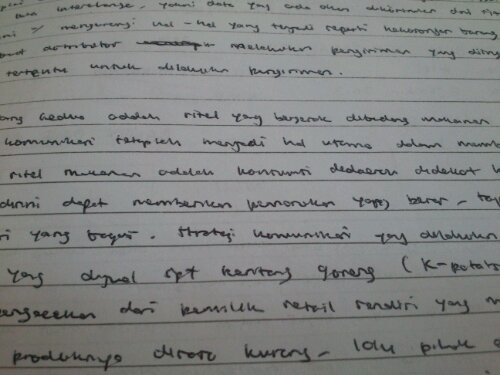 data yang ada akan dikirimkan dari
mengurangi hal - hal yang terjadi seperti kekosongan barang
distributor melakukan pengiriman yang
tertentu untuk dilakukan pengiriman.
kedua adalah ritel yang bergerak dibidang makanan
komunikasi tetaplah menjadi hal utama dalam
ritel makanan adalah konsumsi didaerah didekat
disini dapat memberikan pemasukan yang besar -
yang bagus. Strategi komunikasi yang dilakukan
yang dijual spt kentang goreng (K-potato
pengecekan dari pemilik retail sendiri yang
produknya dirasa kurang - lalu pihak